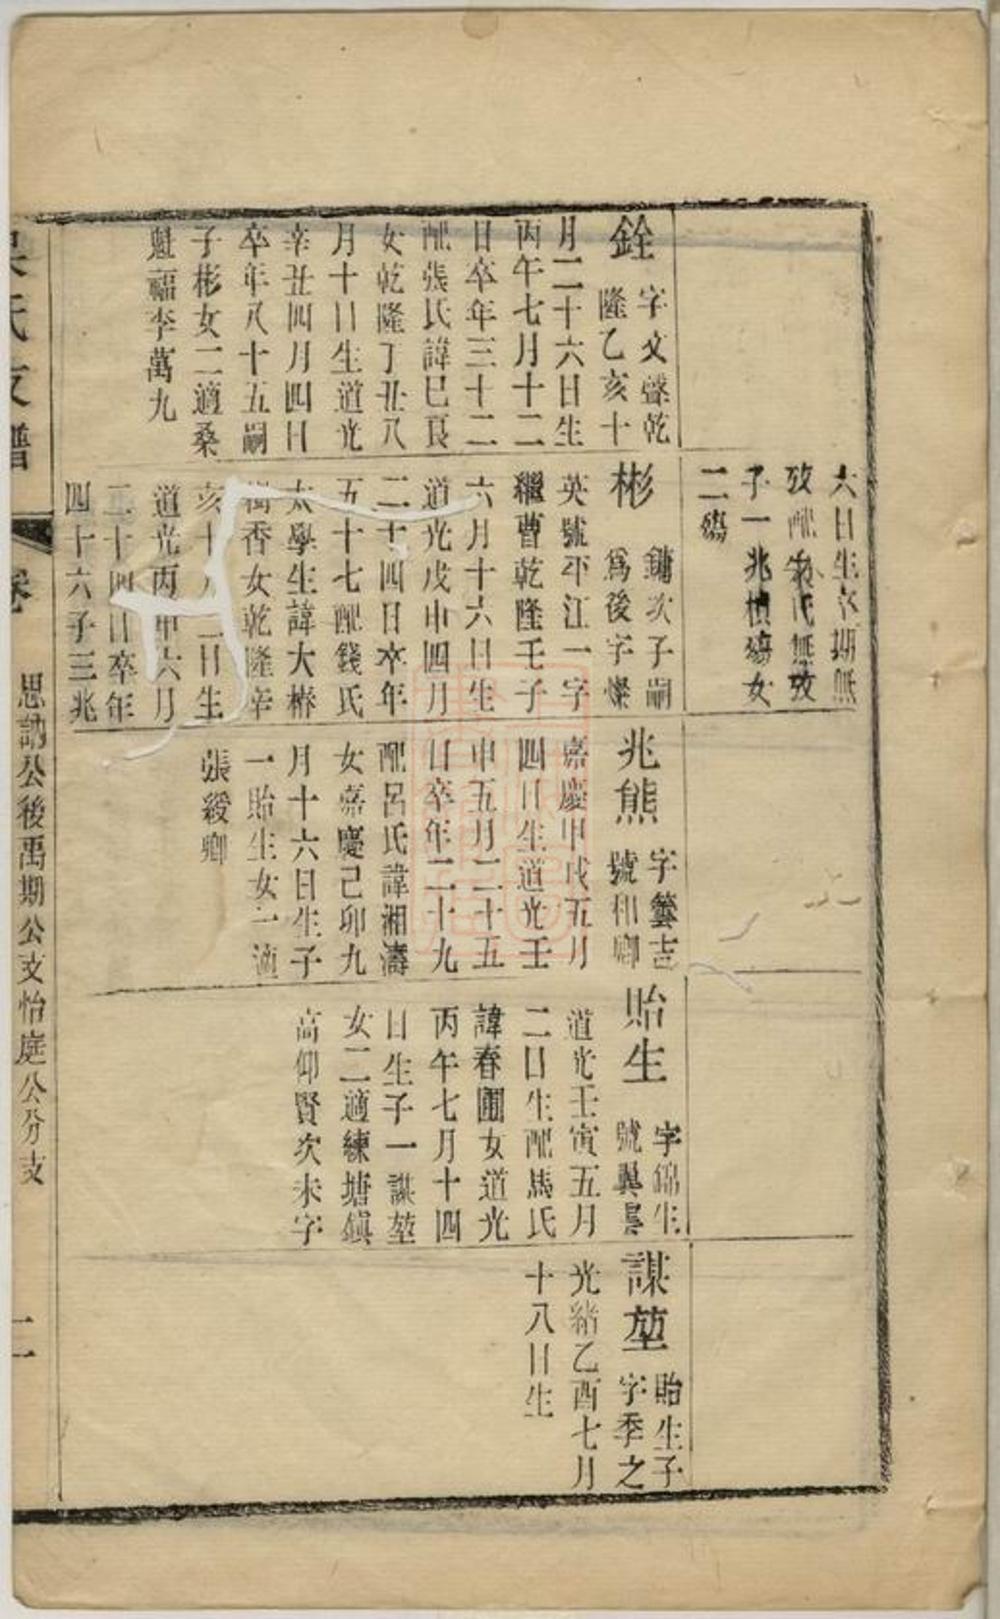 六日生卒期無
攷配氏無攷
子一兆楨殤女
二殤
銓
字文聲乾
隆乙亥十
月二十六日生
丙午七月十二
日卒年三十二
配張氏諱巳良
女乾隆丁丑八
月十日生道光
辛丑四月四日
卒年八十五嗣
子彬女二適桑
魁福李萬九
彬
鏞次子嗣
爲後字燦
英號平江一字
繼曹乾隆壬子
六月十六日生
道光戊申四月
二十四日卒年
五十七配錢氏
太學生諱大椿
樹香女乾隆辛
亥十二日生
道光丙申六月
二十四日卒年
四十六子三兆
兆熊
字藝吉
號和卿
嘉慶甲戌五月
四日生道光壬
申五月二十五
日卒年二十九
配呂氏諱湘濤
女嘉慶己卯九
月十六日生子
一貽生女一適
張緩卿
貽生
字錦生
號巽
道光壬寅五月
二日生配馬氏
諱春圃女道光
丙午七月十四
日生子一謀堃
女二適練塘鎮
高仰賢次未字
謀堃
貽生子
字季之
光緒乙酉七月
十八日生
吳氏支譜
卷
思訥公後禹期公支怡庭公分支
二